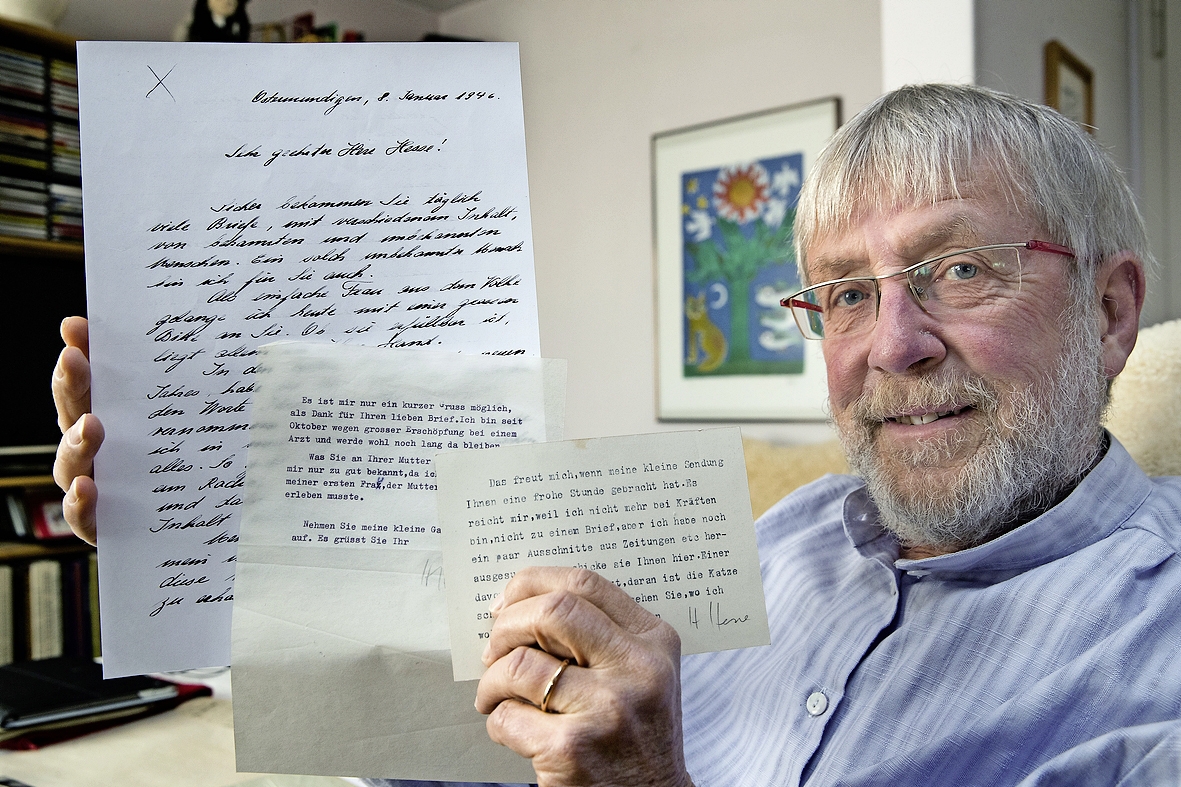 Ostermundigen, 8. Januar 1946.
Sehr geehrter Herr Hesse!
Sicher bekommen Sie täglich
viele Briefe, mit verschiedenem Inhalt,
von bekannten und unbekannten
Menschen. Ein solch unbekannter Mensch
bin ich für Sie auch.
Als einfache Frau aus dem Volke
gelange ich heute mit einer grossen
Bitte an Sie. Ob sie erfüllbar ist,
liegt allein Hand.
In de neuen
Jahres hab
den Worte
vernomm
ich in
alles. So
ein Rad
und da
Inhalt
mein
diese
zu erha
Es ist mir nur ein kurzer Gruss möglich,
als Dank für Ihren lieben Brief.Ich bin seit
Oktober wegen grosser Erschöpfung bei einem
Arzt und werde wohl noch lang da bleiben.
Was Sie an Ihrer Mutter
mir nur zu gut bekannt,da ic
meiner ersten Frau,der Mutter
erleben musste.
Nehmen Sie meine kleine Ga
auf. Es grüsst Sie Ihr
Das freut mich,wenn meine kleine Sendung
Ihnen eine frohe Stunde gebracht hat.Es
reicht mir,weil ich nicht mehr bei Kräften
bin,nicht zu einem Brief,aber ich habe noch
ein paar Ausschnitte aus Zeitungen etc her-
ausgesu hicke sie Ihnen hier.Einer
davo t,daran ist die Katze
sch ehen Sie,wo ich
wo n
H Hesse